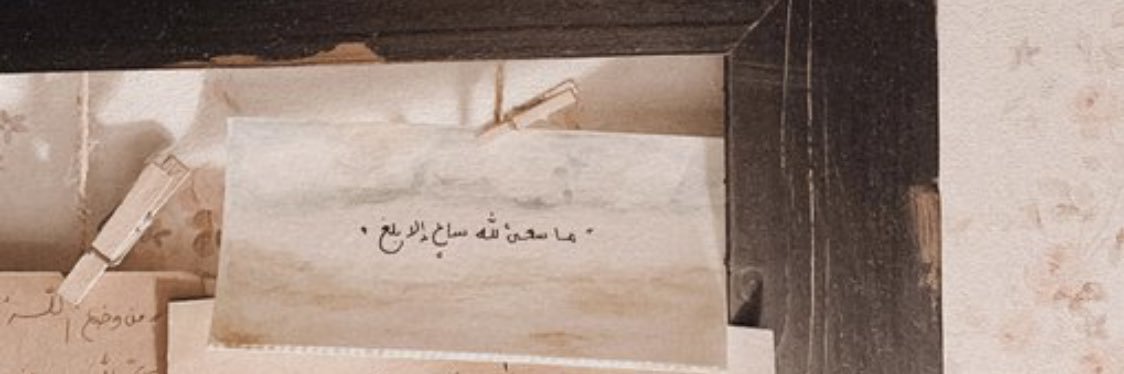 ما سعىٰ لله ساعٍ إلا بلغ
من وضع الله